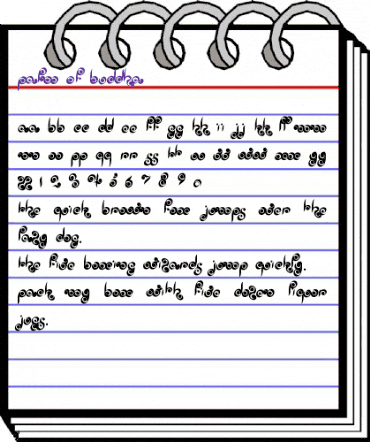 palms of buddha
aa bb cc dd ee ff gg hh ii jj kk ll mm
nn oo pp qq rr ss tt uu vv ww xx yy
zz 1 2 3 4 5 6 7 8 9 0
the quick brown fox jumps over the
lazy dog.
the five boxing wizards jump quickly.
pack my box with five dozen liquor
jugs.